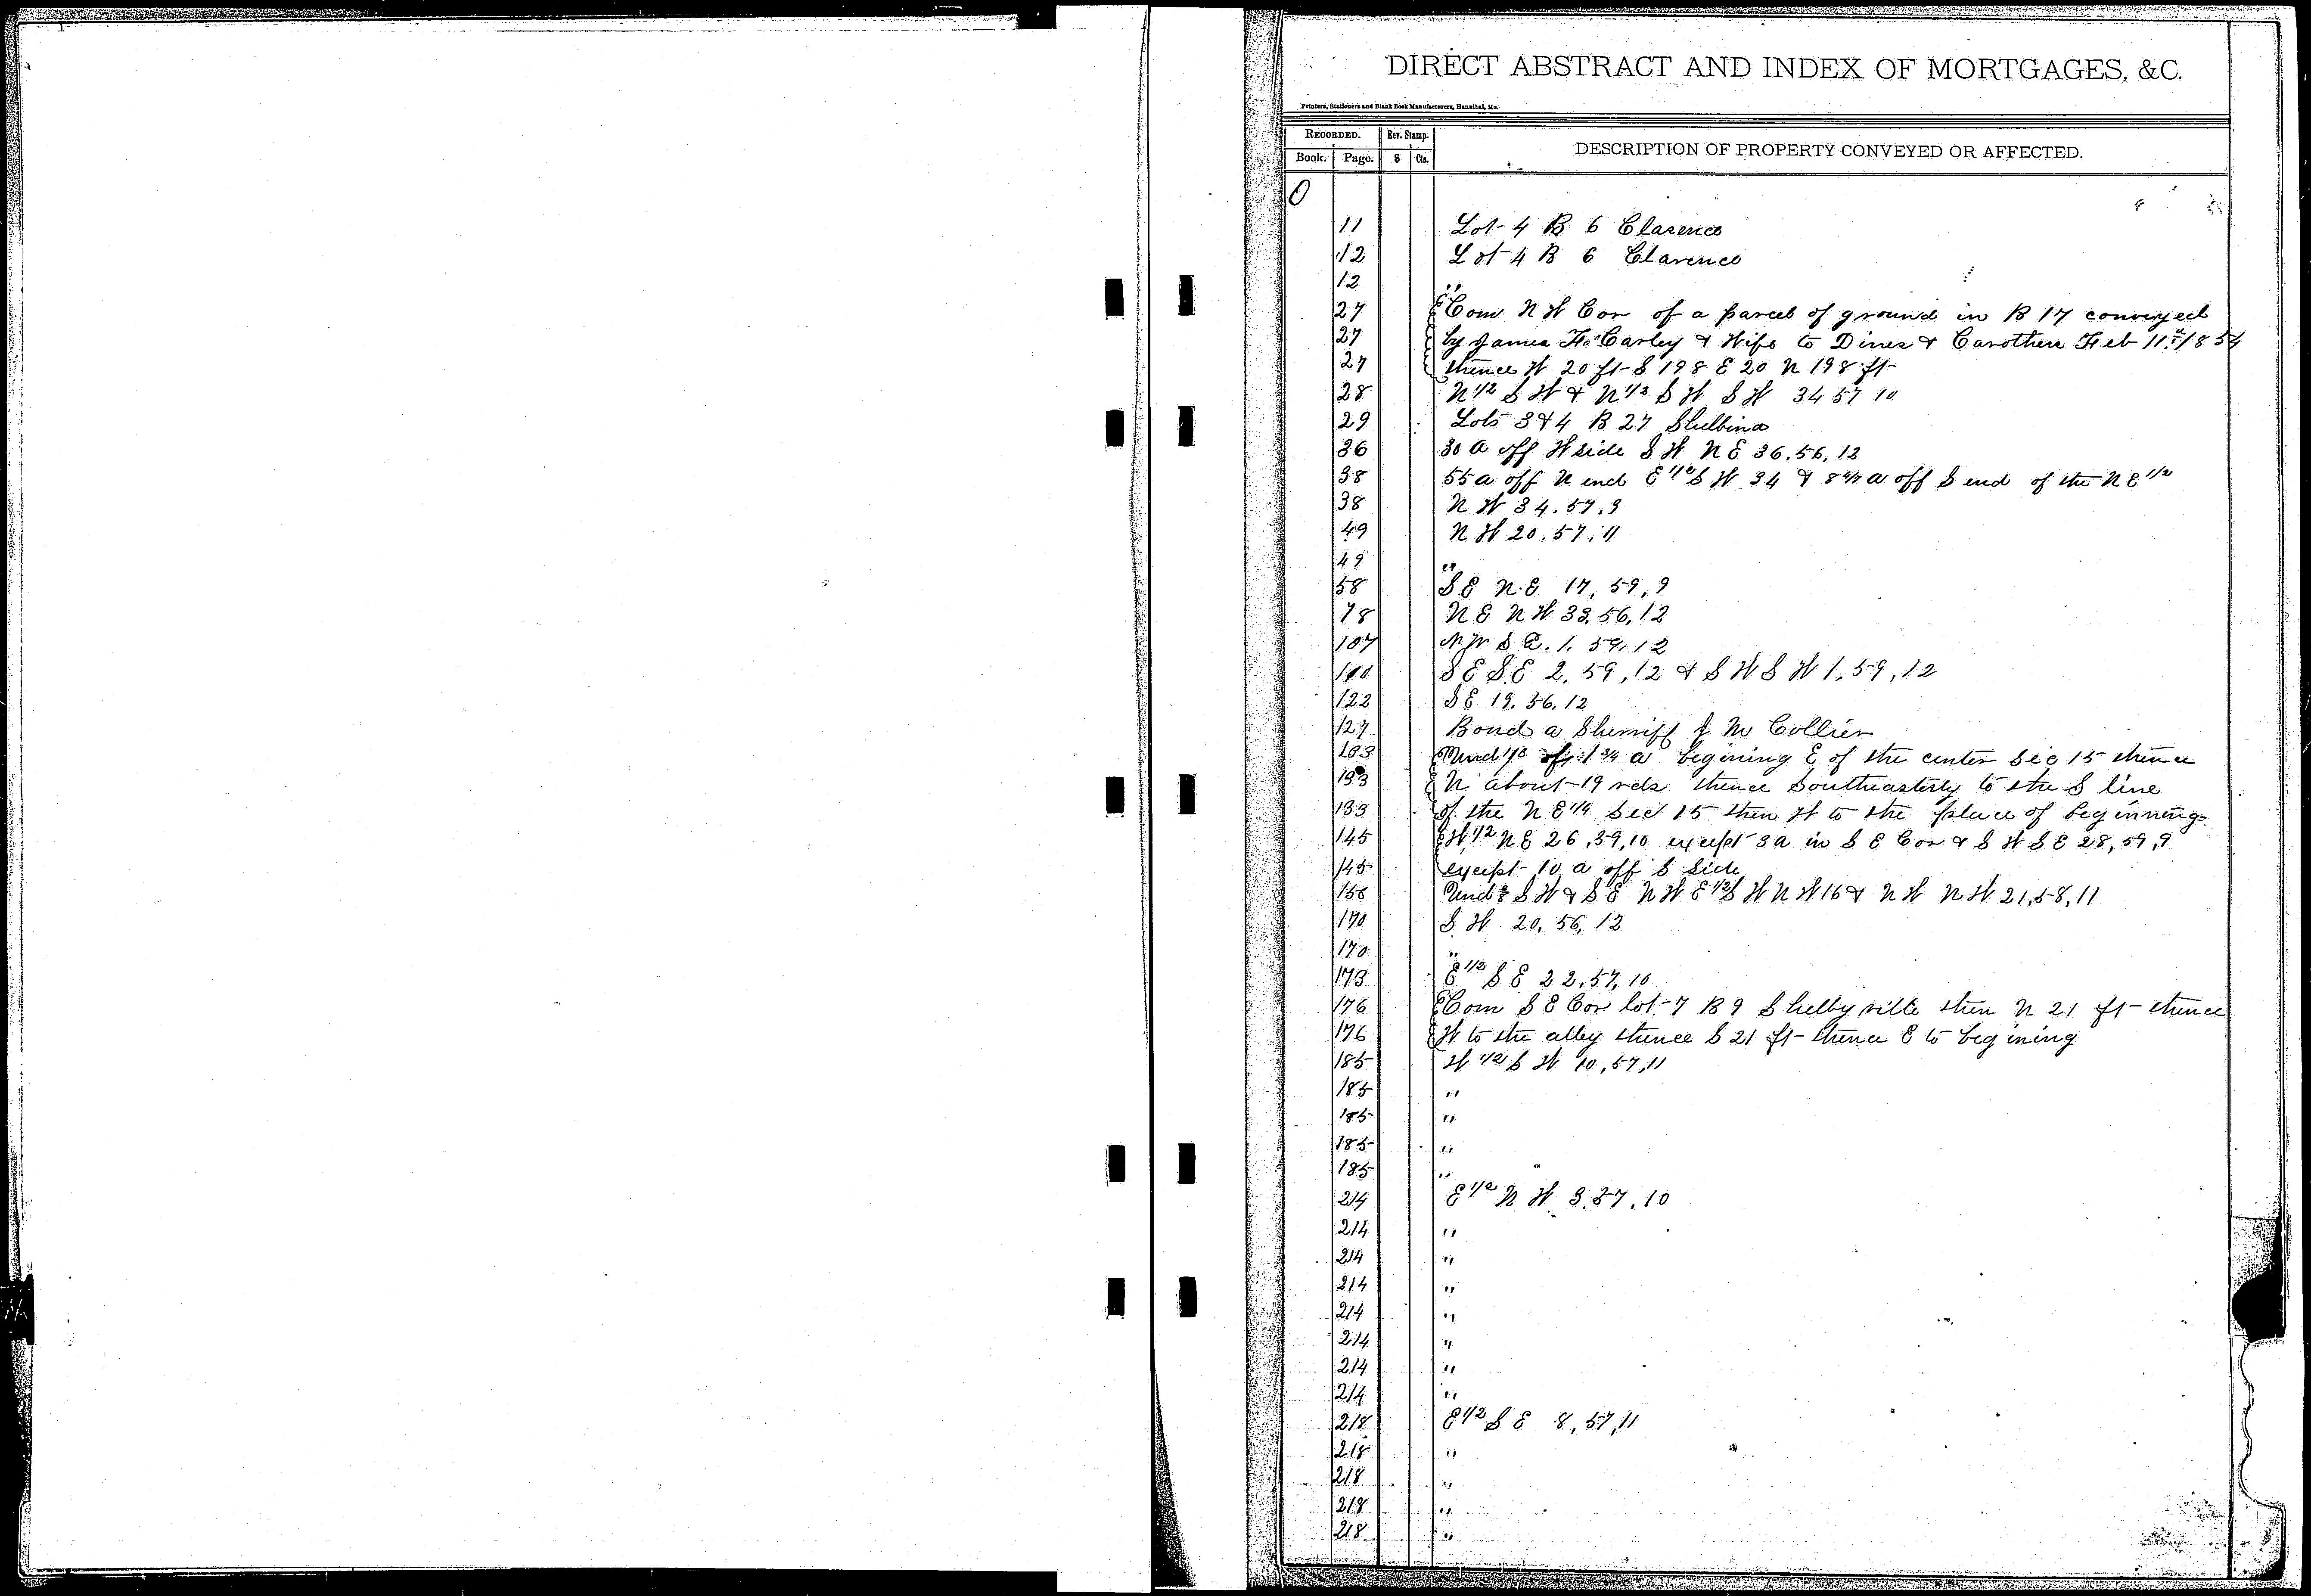 DIRECT ABSTRACT AND INDEX OF MORTGAGES, &C.
Printers, Stationers and Blank Book Manufacturers, Hannibal, Mo.
RECORDED. Rev. Stamp.
Book. Page. $ Cts. DESCRIPTION OF PROPERTY CONVEYED OR AFFECTED.
O
11 Lot 4 B 6 Clarence
12 Lot 4 B 6 Clarence
12 "
27 Com N W Cor of a parcel of ground in B 17 conveyed
27 by James F. Carley & Wife to Dines & Carothers Feb 11th 1854
27 thence W 20 ft S 198 E 20 N 198 ft
28 N 1/2 S W & N 1/2 S W S W 34 57 10
29 Lots 3 & 4 B 27 Shelbina
36 30 a off W side S W N E 36, 56, 12
38 55 a off N end E 1/2 S W 34 & a off S end of the N E 1/2
38 N W 34, 57, 9
49 N W 20, 57, 11
49 "
58 S E N E 17, 59, 9
78 N E N W 33, 56, 12
107 N W S E. 1, 59, 12
110 S E S E 2, 59, 12 & S W S W 1, 59, 12
122 S E 19, 56, 12
127 Bond a Sherriff J M Collier
133 Und 1/3 of 1 3/4 a begining E of the center Sec 15 thence
133 N about 19 rds thence Southeasterly to the S line
133 of the N E 1/4 Sec 15 then W to the place of beginning
145 W 1/2 N E 26, 59, 10 except 3 a in S E Cor & S W S E 28, 59, 9
145 except 10 a off S Side
156 Und S W & S E N W E 1/2 S W N W 16 & N W N W 21, 58, 11
170 S W 20, 56, 12
170 "
173 E 1/2 S E 22, 57, 10
176 Com S E Cor lot 7 B 9 Shelbyville then N 21 ft thence
176 W to the alley thence S 21 ft thence E to begining
185 W 1/2 S W 10, 57, 11
185 "
185 "
185 "
185 "
214 E 1/2 N W 3, 57, 10
214 "
214 "
214 "
214 "
214 "
214 "
214 "
218 E 1/2 S E 8, 57, 11
218 "
218 "
218 "
218 "